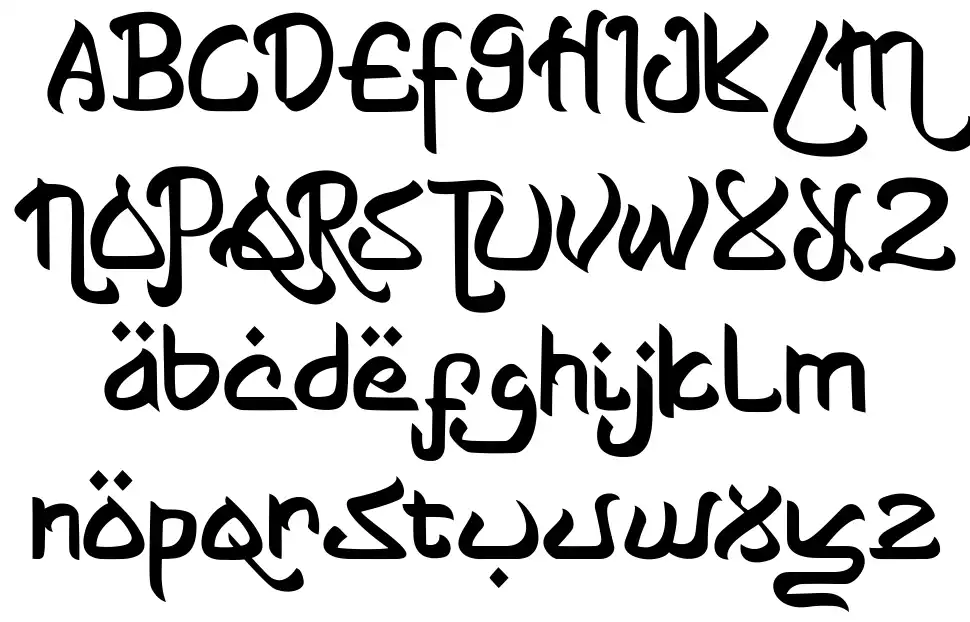 ABCDEFGHIJKLM
NOPQRSTUVWXYZ
äbċdëfghijklm
nöpqrstụvwxyz